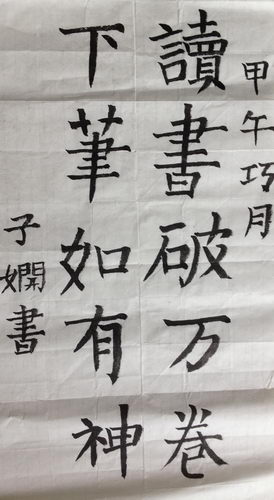 甲午巧月
讀書破万卷
下筆如有神
子嫻書